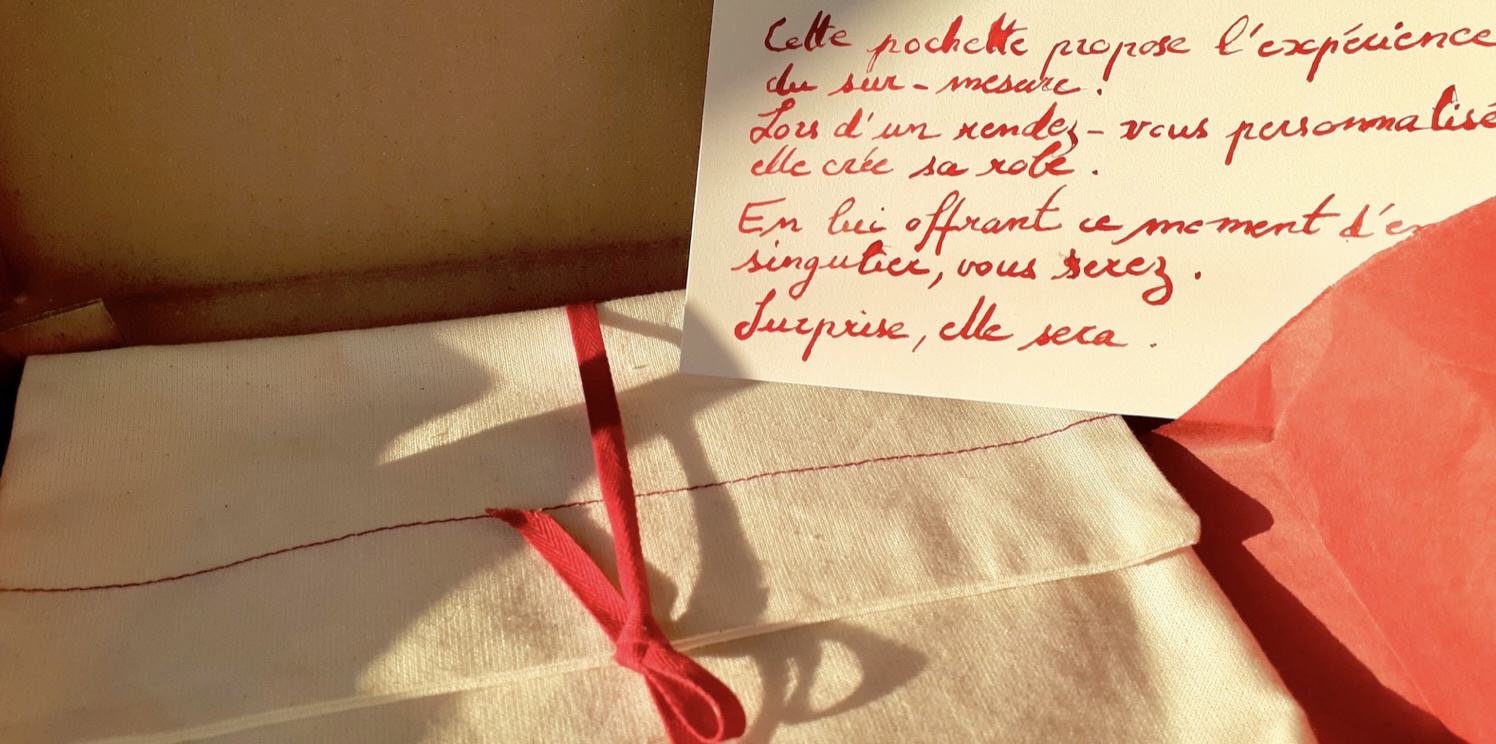 Cette pochette propose l'expérience
du sur-mesure.
Lors d'un rendez-vous personnalisé
elle crée sa robe.
En lui offrant ce moment
singulier, vous serez.
Surprise, elle sera.